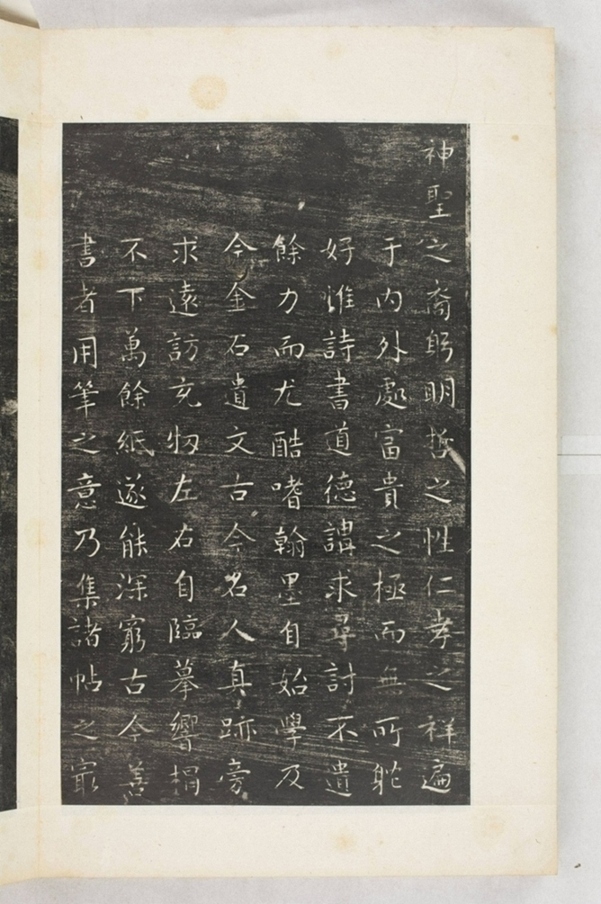 神聖之裔躬明哲之性仁孝之祥遍
于内外處富貴之極而無所躭
好惟詩書道德講求尋討不遺
餘力而尤酷嗜翰墨自始學及
今金石遺文古今名人真跡旁
求遠訪充牣左右自臨摹響搨
不下萬餘紙遂能深窮古今善
書者用筆之意乃集諸帖之㝡